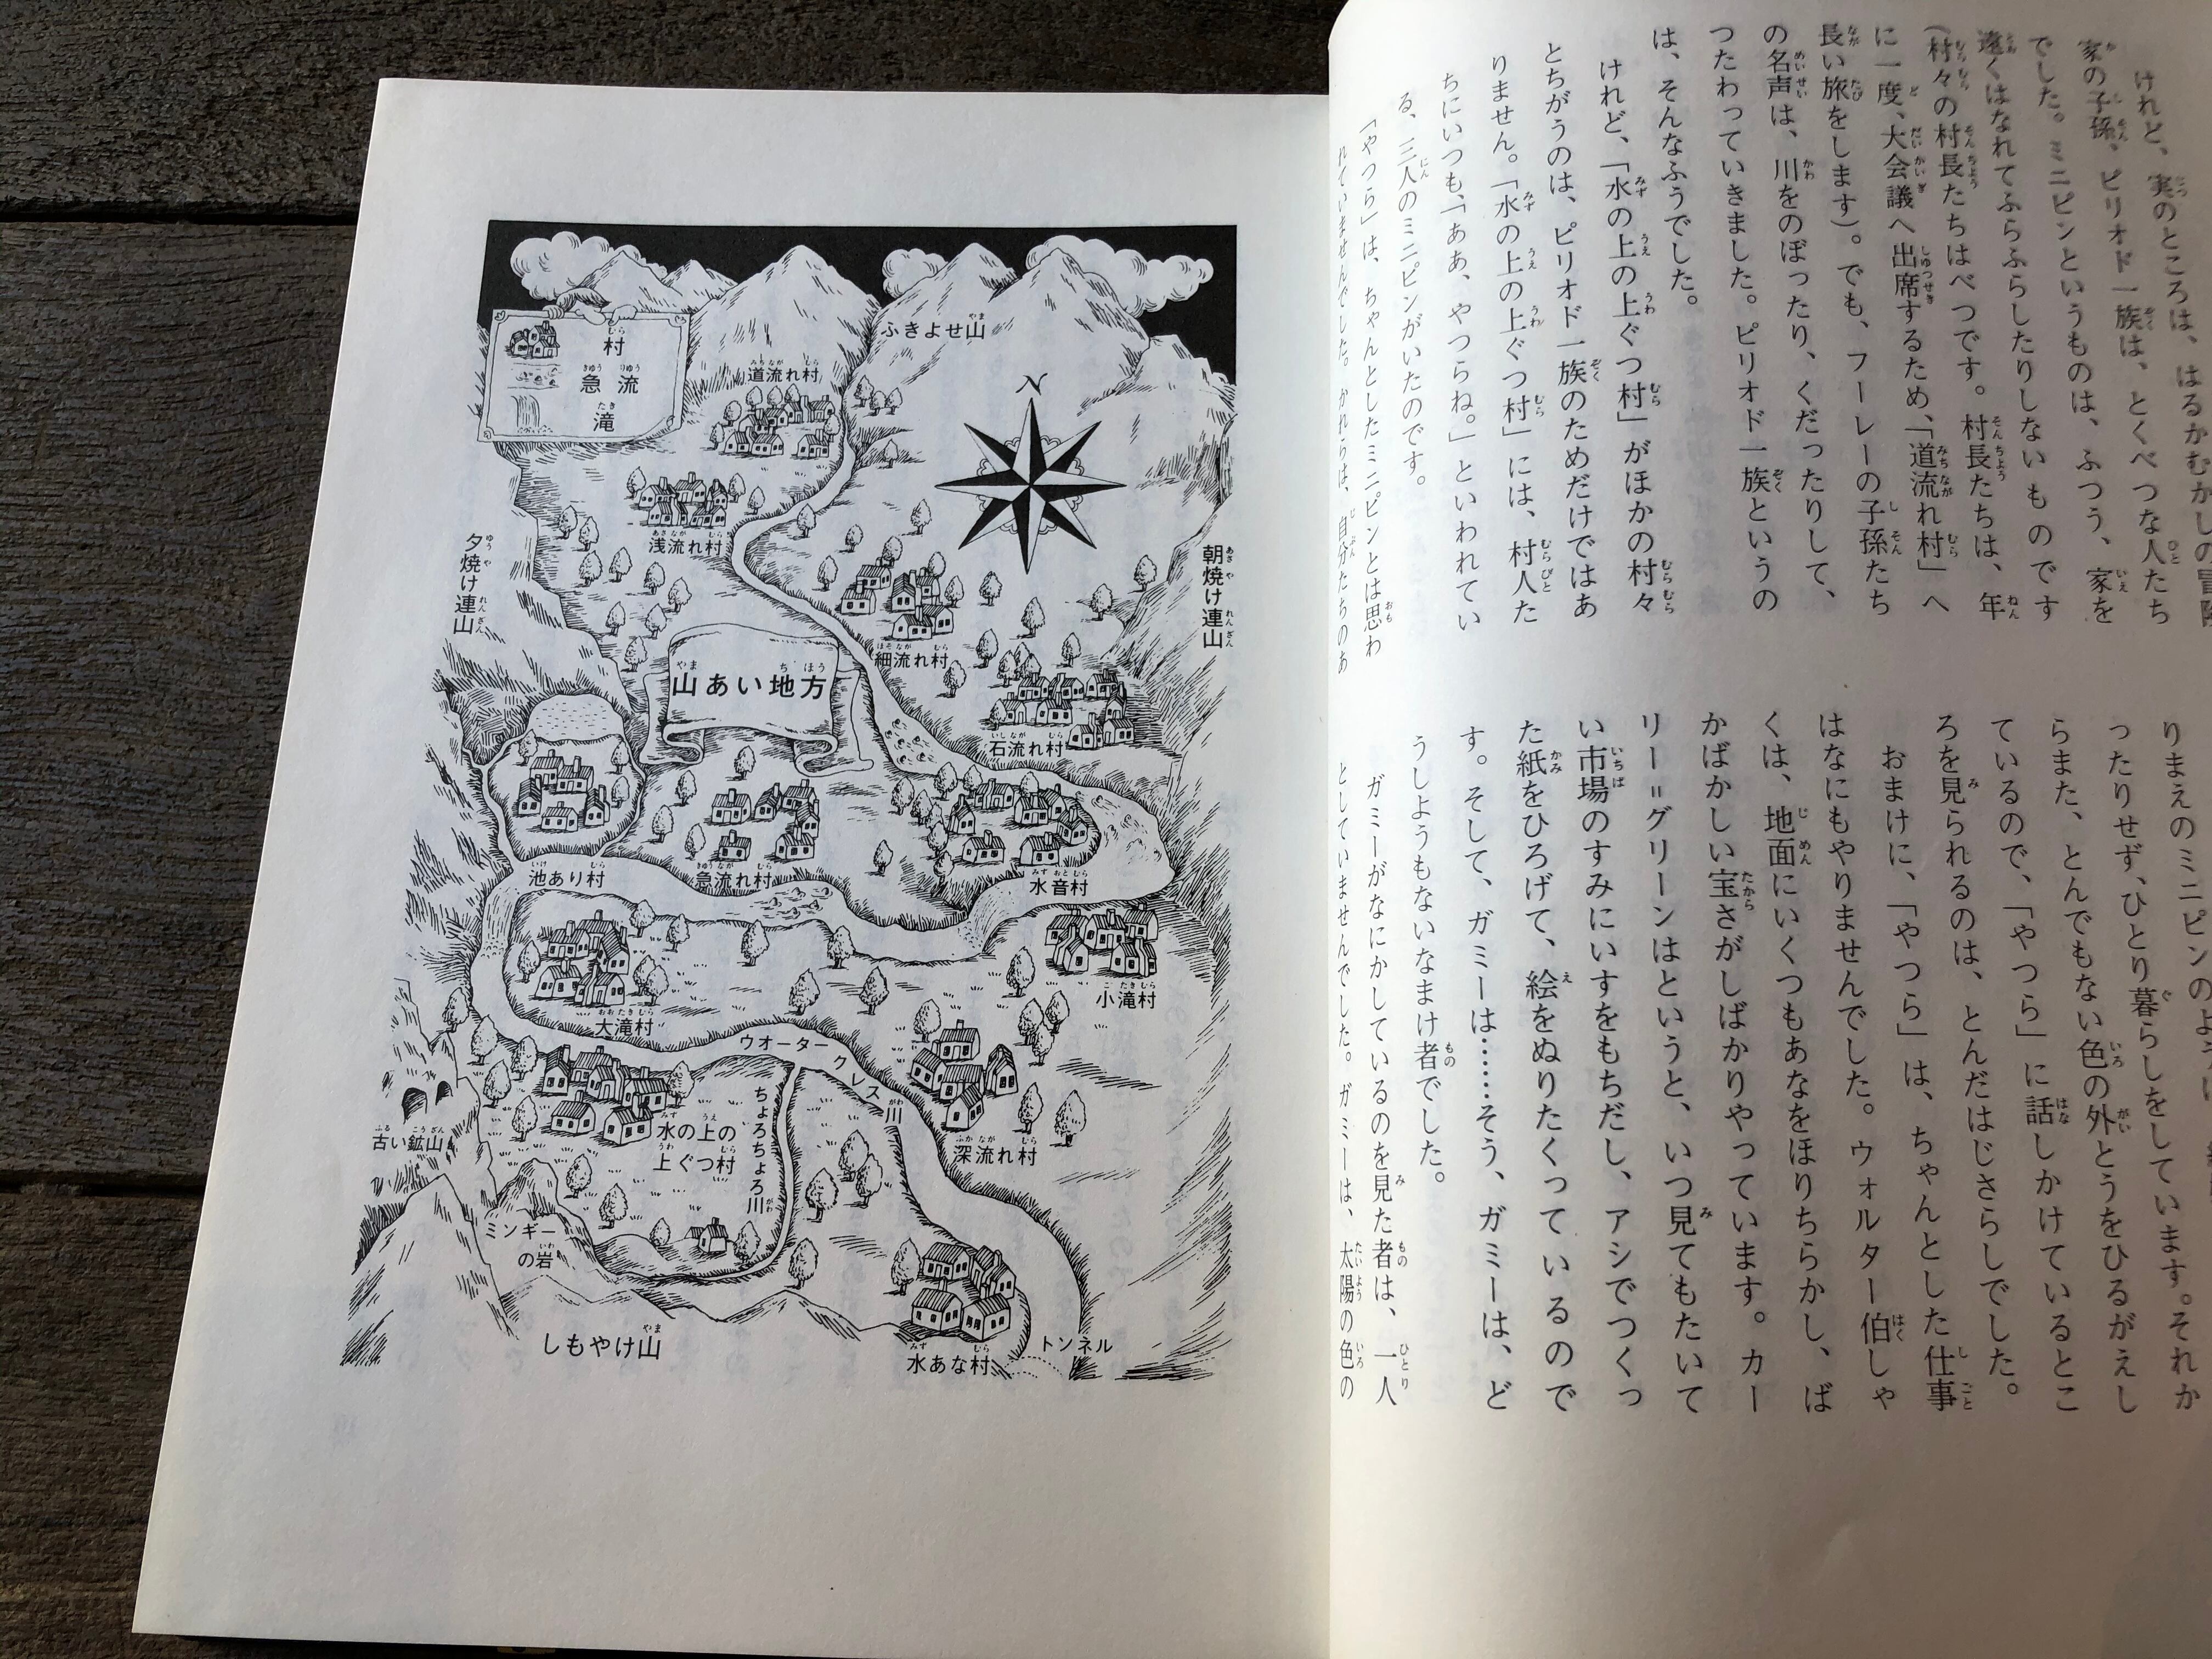 村
急流
滝
ふきよせ山
道流れ村
N
浅流れ村
夕焼け連山
朝焼け連山
細流れ村
山あい地方
石流れ村
池あり村
急流れ村
水音村
大滝村
小滝村
ウオータークレス川
ちょろちょろ川
古い鉱山
水の上の
上ぐつ村
深流れ村
ミンギー
の岩
しもやけ山
水あな村
トンネル
けれど、実のところは、はるかむかしの冒険
家の子孫、ピリオド一族は、とくべつな人たち
でした。ミニピンというものは、ふつう、家を
遠くはなれてふらふらしたりしないものです
(村々の村長たちはべつです。村長たちは、年
に一度、大会議へ出席するため、「道流れ村」へ
長い旅をします)。でも、フーレーの子孫たち
の名声は、川をのぼったり、くだったりして、
つたわっていきました。ピリオド一族というの
は、そんなふうでした。
けれど、「水の上の上ぐつ村」がほかの村々
とちがうのは、ピリオド一族のためだけではあ
りません。「水の上の上ぐつ村」には、村人た
ちにいつも、「ああ、やつらね。」といわれてい
る、三人のミニピンがいたのです。
「やつら」は、ちゃんとしたミニピンとは思わ
れていませんでした。かれらは、自分たちのあ
りまえのミニピンのように
ったりせず、ひとり暮らしをしています。それか
らまた、とんでもない色の外とうをひるがえし
ているので、「やつら」に話しかけているとこ
ろを見られるのは、とんだはじさらしでした。
おまけに、「やつら」は、ちゃんとした仕事
はなにもやりませんでした。ウォルター伯しゃ
くは、地面にいくつもあなをほりちらかし、ば
かばかしい宝さがしばかりやっています。カー
リー=グリーンはというと、いつ見てもたいて
い市場のすみにいすをもちだし、アシでつくっ
た紙をひろげて、絵をぬりたくっているので
す。そして、ガミーは……そう、ガミーは、ど
うしようもないなまけ者でした。
ガミーがなにかしているのを見た者は、一人
としていませんでした。ガミーは、太陽の色の